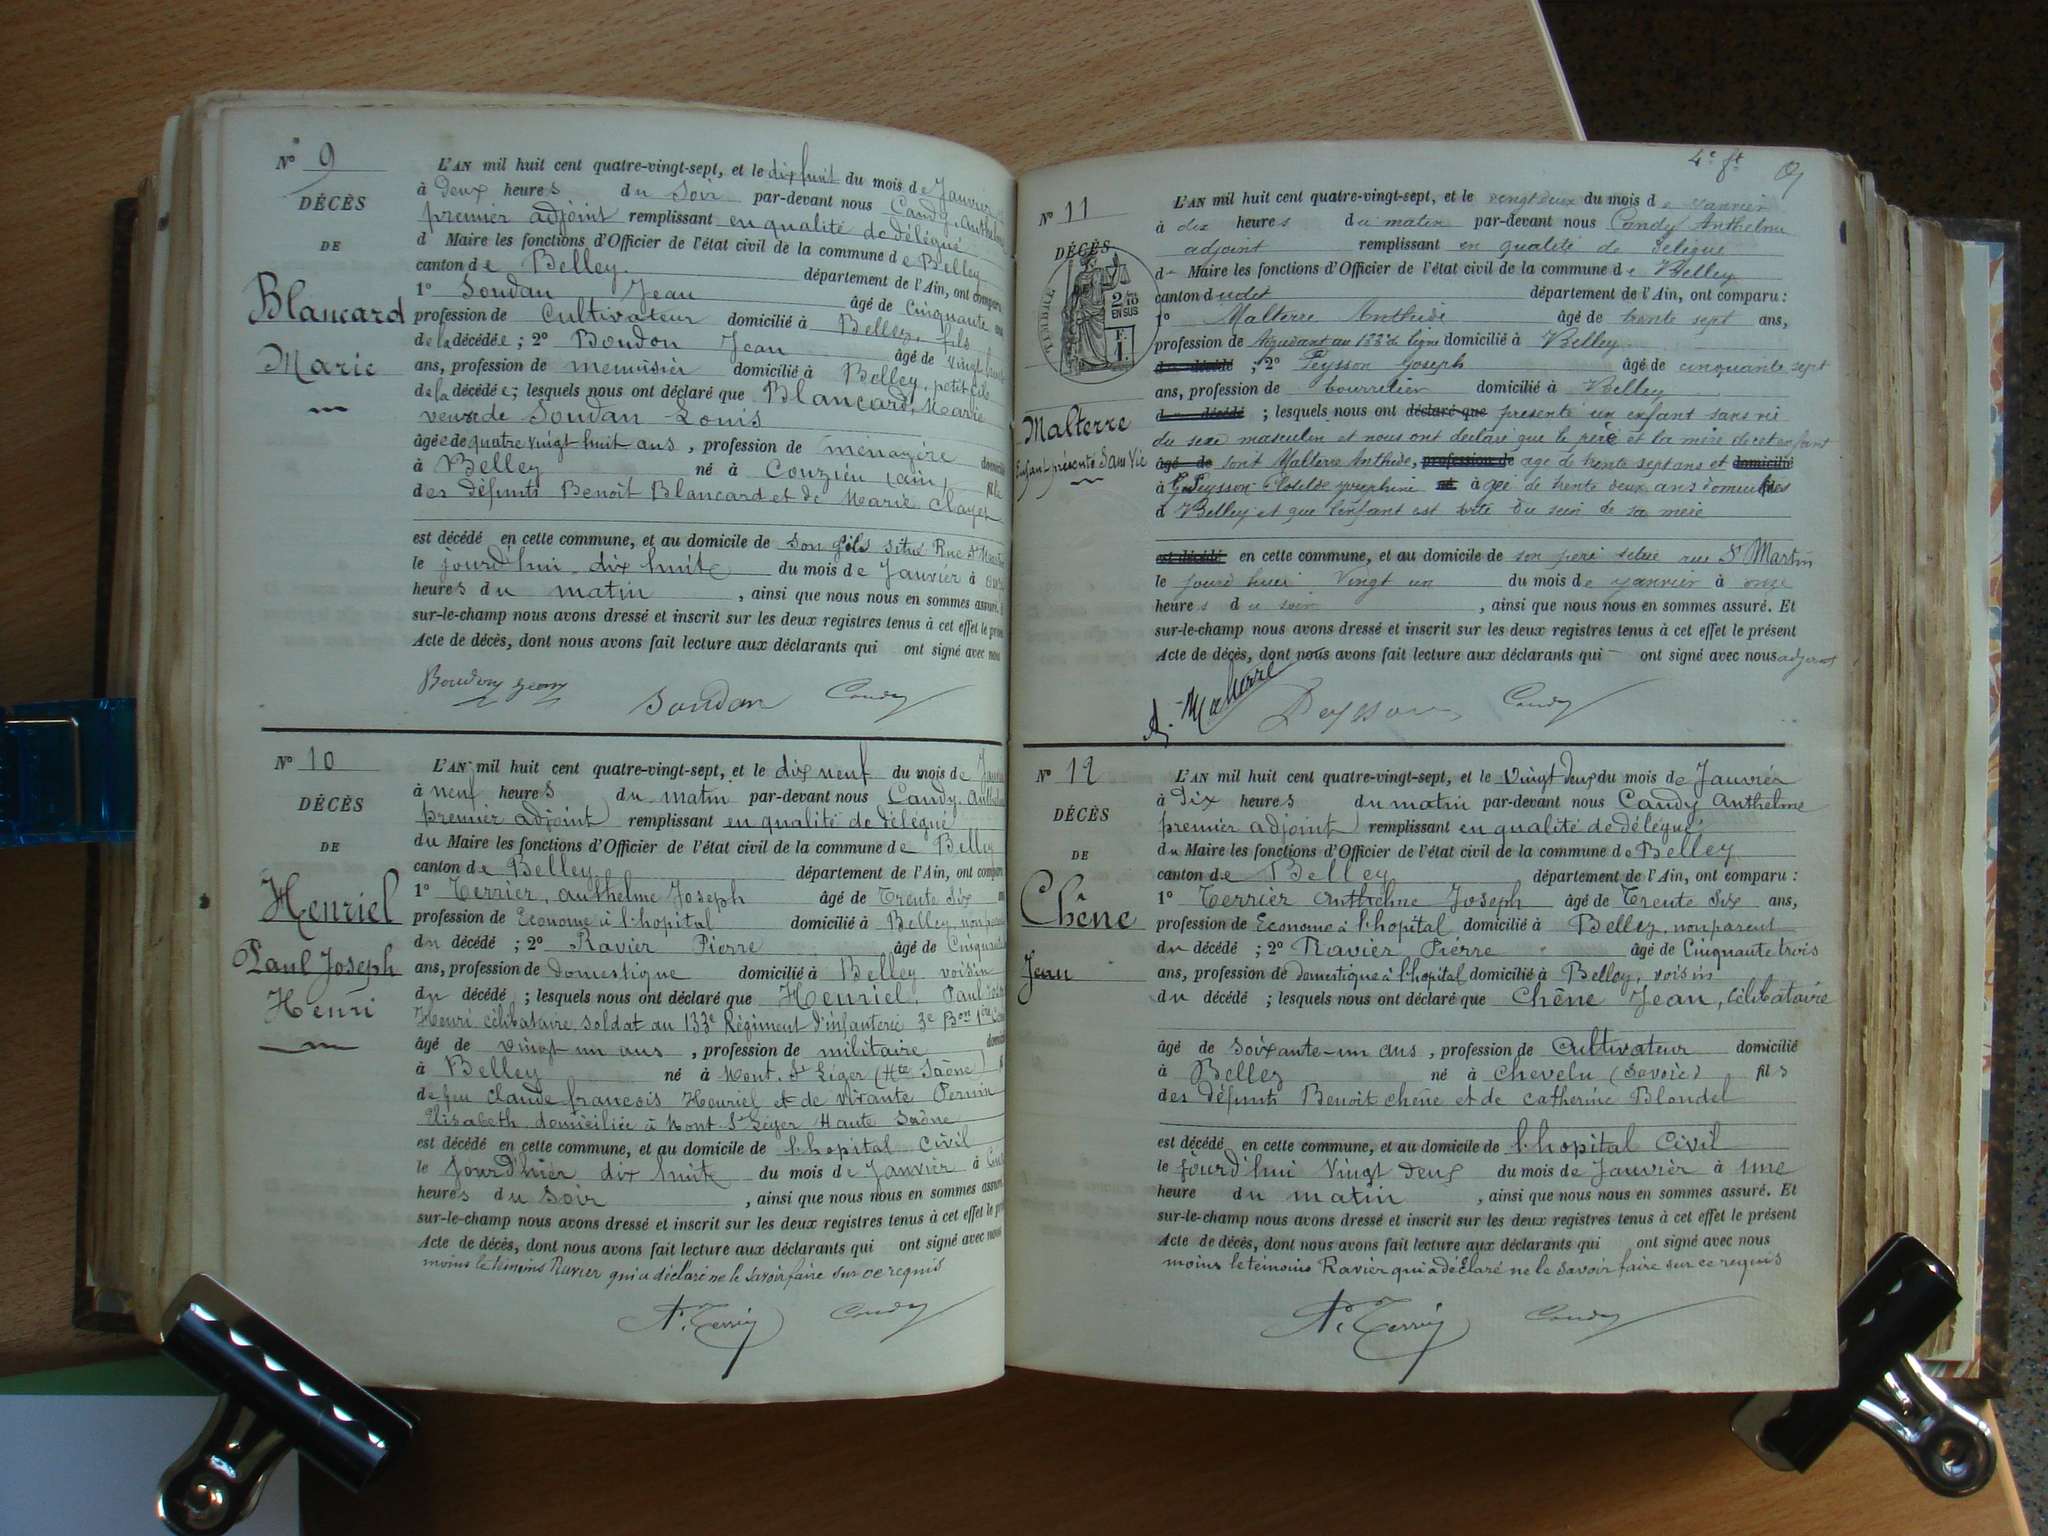 N° 9
DÉCÈS
DE
Blancard
Marie
L'AN mil huit cent quatre-vingt-sept, et le dix huit du mois de Janvier
à deux heures du Soir par-devant nous Candy, Anthelme
premier adjoint remplissant en qualité de délégué
d Maire les fonctions d'Officier de l'état civil de la commune de Belley
canton de Belley département de l'Ain, ont comparu
1° Soudan Jean âgé de Cinquante
profession de Cultivateur domicilié à Belley, fils
de la décédée ; 2° Boudon Jean âgé de vingt huit
ans, profession de menuisier domicilié à Belley, petit fils
de la décédée ; lesquels nous ont déclaré que Blancard, Marie
veuve de Soudan Louis
âgée de quatre vingt huit ans, profession de ménagère
à Belley né à Couzieu (ain)
des défunts Benoit Blancard et de Marie Clayet
est décédé en cette commune, et au domicile de son fils situé Rue St
le jourd'hui dix huit du mois de Janvier à
heures du matin, ainsi que nous nous en sommes assuré.
sur-le-champ nous avons dressé et inscrit sur les deux registres tenus à cet effet le
Acte de décès, dont nous avons fait lecture aux déclarants qui ont signé avec nous
Boudon Jean Soudan Candy
N° 10
DÉCÈS
DE
Henriel
Paul Joseph
Henri
L'AN mil huit cent quatre-vingt-sept, et le dix neuf du mois de
à neuf heures du matin par-devant nous Candy, Anthelme
premier adjoint remplissant en qualité de délégué
du Maire les fonctions d'Officier de l'état civil de la commune de Belley
canton de Belley département de l'Ain, ont
1° Terrier, anthelme Joseph âgé de Trente Six
profession de Econome à l'hopital domicilié à Belley, non
du décédé ; 2° Ravier Pierre âgé de Cinquante
ans, profession de domestique domicilié à Belley voisin
du décédé ; lesquels nous ont déclaré que Henriel, Paul
Henri célibataire soldat au 133e Régiment d'infanterie 3e Bon 1ère
âgé de vingt-un ans, profession de militaire
à Belley né à Mont. St Léger (Hte Saône)
de feu Claude francois Henriel et de vivante Perrin
Elisabeth domiciliée à Mont St Léger Haute Saône
est décédé en cette commune, et au domicile de l'hopital Civil
le Jourd'hier dix huit du mois de Janvier à
heures du Soir, ainsi que nous nous en sommes assuré.
sur-le-champ nous avons dressé et inscrit sur les deux registres tenus à cet effet le
Acte de décès, dont nous avons fait lecture aux déclarants qui ont signé avec nous
moins le témoins Ravier qui a déclaré ne le savoir faire sur ce requis
A. Terrier Candy
4e ft
N° 11
DÉCÈS
TIMBRE
2 10
EN SUS
F.
1.
Malterre
Enfant présenté Sans Vie
L'AN mil huit cent quatre-vingt-sept, et le vingt deux du mois de Janvier
à dix heures du matin par-devant nous Candy Anthelme
adjoint remplissant en qualité de délégué
du Maire les fonctions d'Officier de l'état civil de la commune de Belley
canton dudit département de l'Ain, ont comparu :
1° Malterre Anthide âgé de trente sept ans,
profession de Adjudant au 133e de ligne domicilié à Belley
du décédé ; 2° Peysson Joseph âgé de cinquante sept
ans, profession de bourrelier domicilié à Belley
d décédé ; lesquels nous ont déclaré que présenté un enfant sans vie
du sexe masculin et nous ont déclaré que le père et la mère de cet enfant
âgé de sont Malterre Anthide, profession de age de trente sept ans et domicilié
à Peysson Clotilde Josephine né à agée de trente deux ans domiciliés
à Belley et que l'enfant est sorti du sein de sa mère
est décédé en cette commune, et au domicile de son père situé rue St Martin
le jourd'huier Vingt un du mois de Janvier à onze
heures du soir, ainsi que nous nous en sommes assuré. Et
sur-le-champ nous avons dressé et inscrit sur les deux registres tenus à cet effet le présent
Acte de décès, dont nous avons fait lecture aux déclarants qui ont signé avec nous adjoint
A. Malterre Peysson Candy
N° 12
DÉCÈS
DE
Chêne
Jean
L'AN mil huit cent quatre-vingt-sept, et le Vingt deux du mois de Janvier
à Dix heures du matin par-devant nous Candy Anthelme
premier adjoint remplissant en qualité de délégué
du Maire les fonctions d'Officier de l'état civil de la commune de Belley
canton de Belley département de l'Ain, ont comparu :
1° Terrier Anthelme Joseph âgé de Trente Six ans,
profession de Econome à l'hopital domicilié à Belley, non parent
du décédé ; 2° Ravier Pierre âgé de Cinquante trois
ans, profession de domestique à l'hopital domicilié à Belley, voisin
du décédé ; lesquels nous ont déclaré que Chêne Jean, célibataire
âgé de soixante-un ans, profession de Cultivateur domicilié
à Belley né à Chevelu (Savoie) fils
des défunts Benoit chêne et de Catherine Blondel
est décédé en cette commune, et au domicile de l'hopital Civil
le jourd'hui Vingt deux du mois de Janvier à une
heure du matin, ainsi que nous nous en sommes assuré. Et
sur-le-champ nous avons dressé et inscrit sur les deux registres tenus à cet effet le présent
Acte de décès, dont nous avons fait lecture aux déclarants qui ont signé avec nous
moins le témoins Ravier qui a déclaré ne le savoir faire sur ce requis
A. Terrier Candy